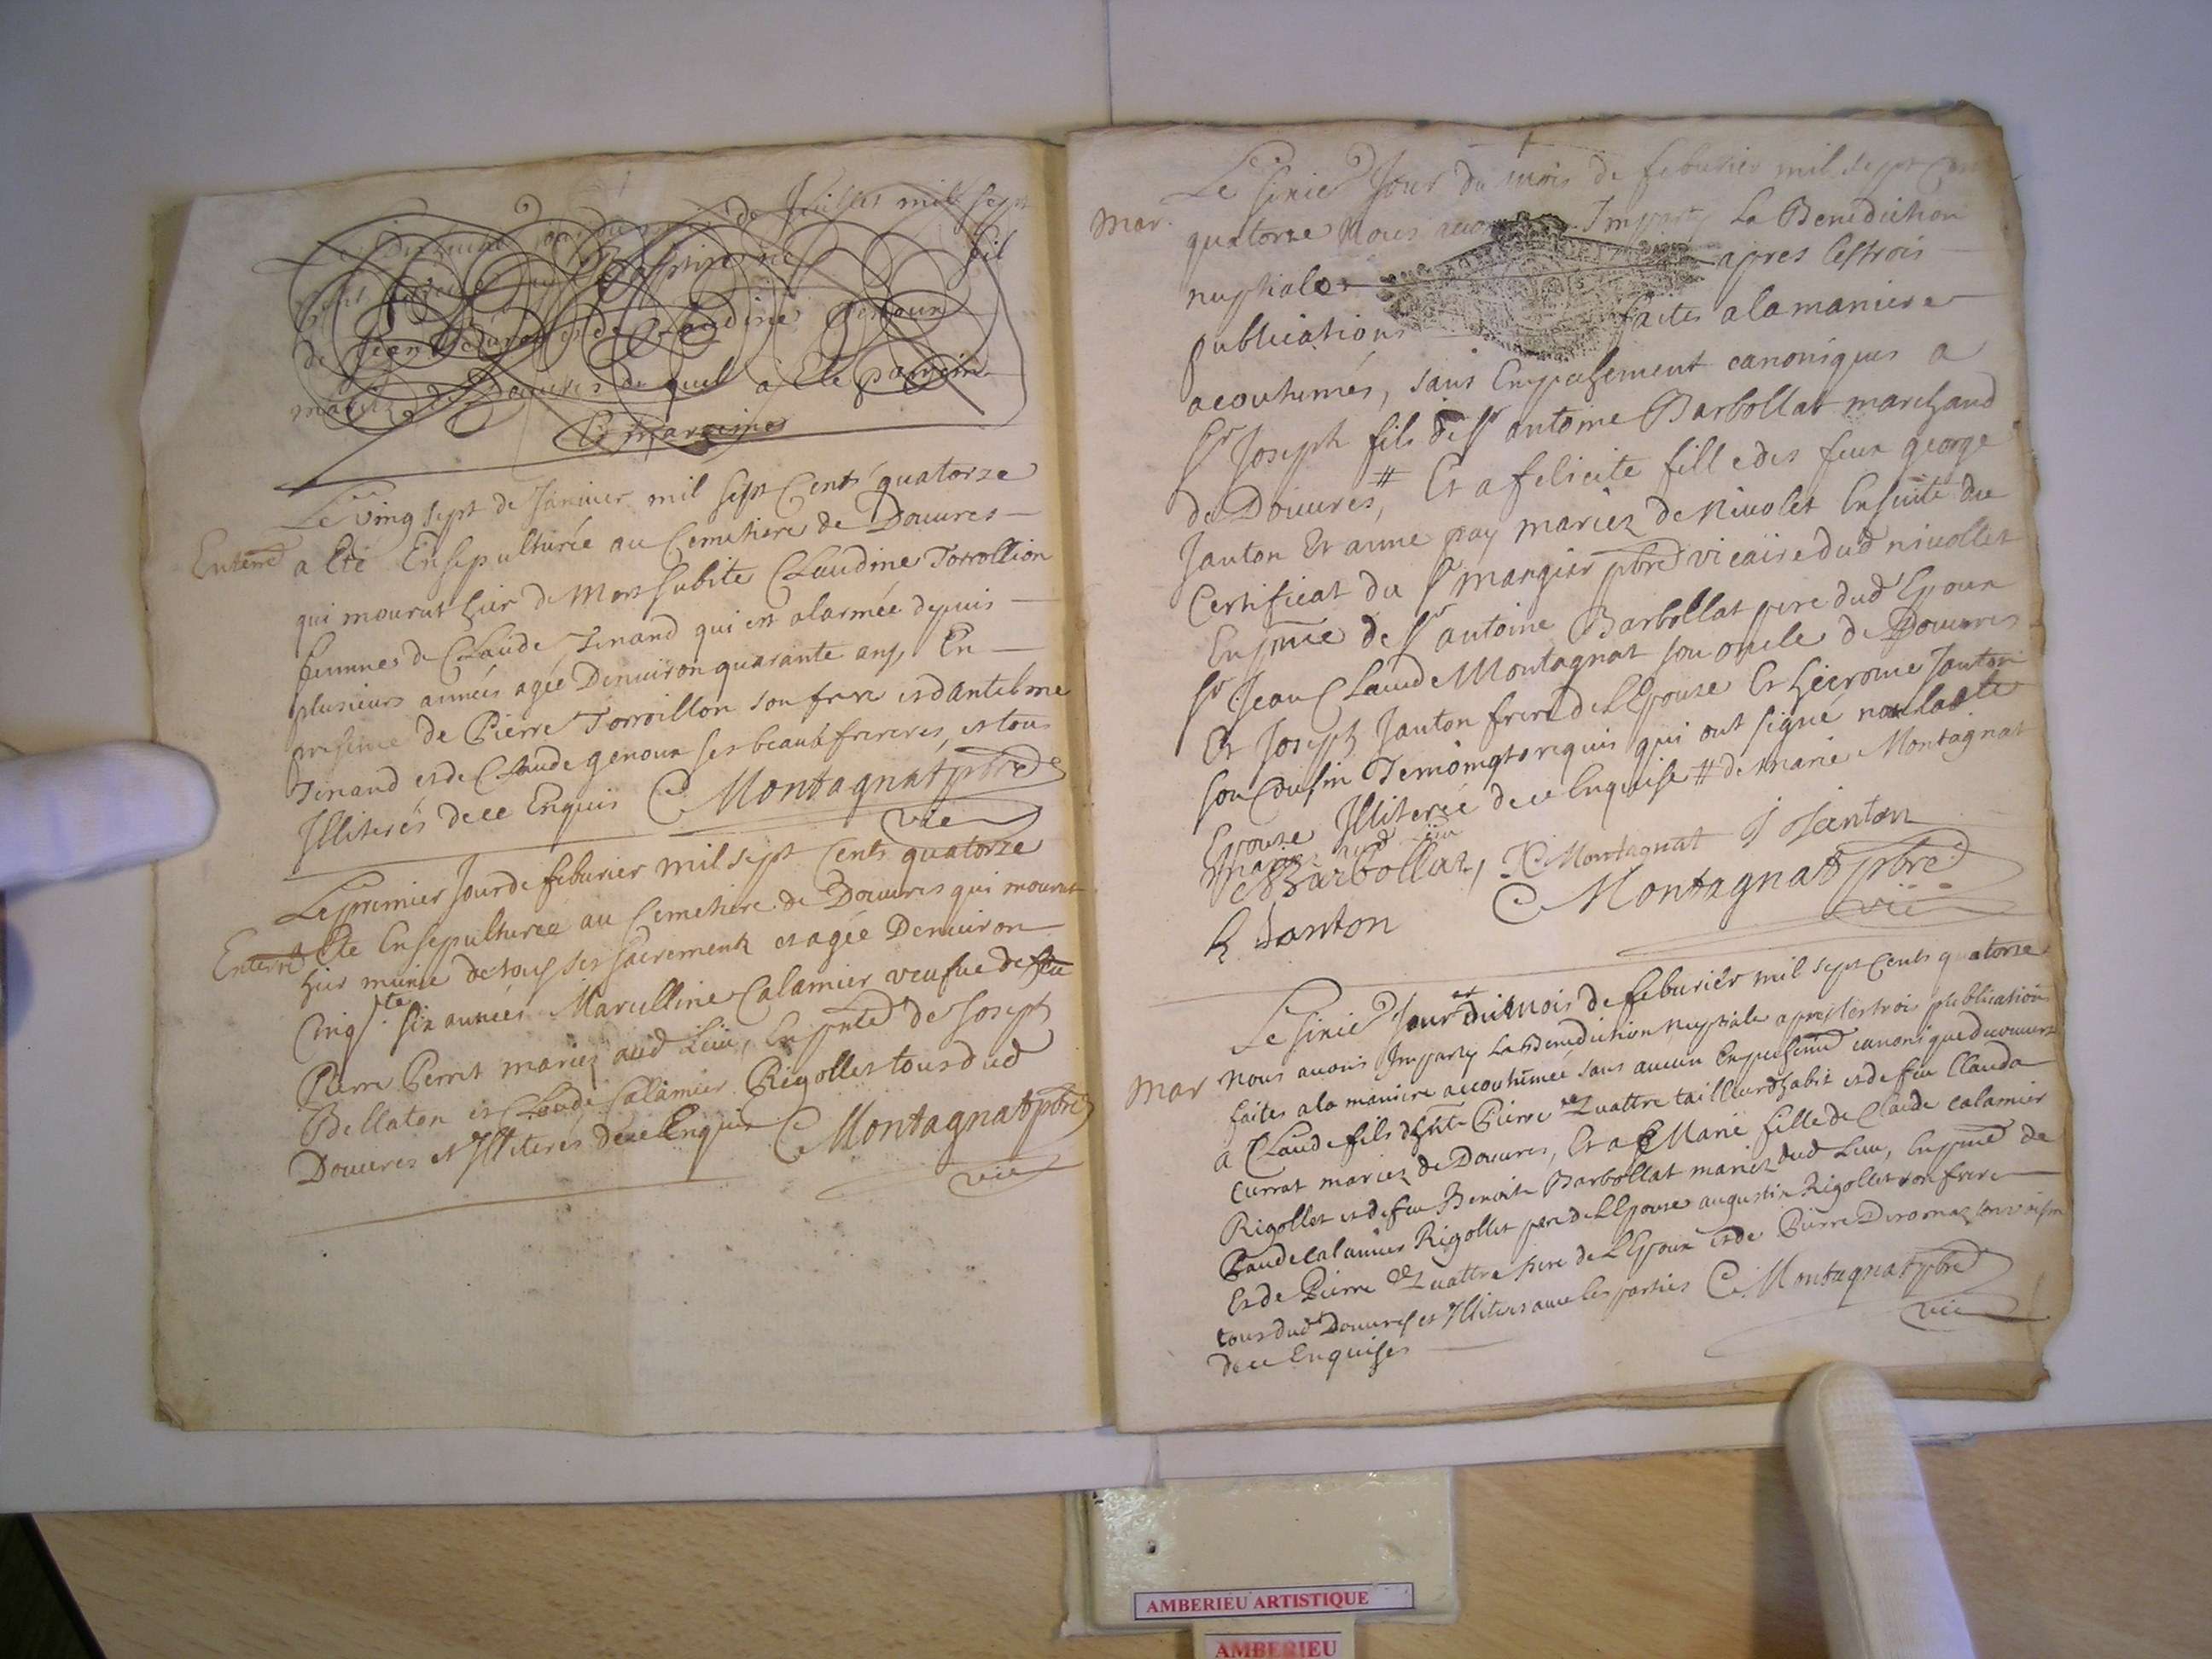 de Juillet mil sept
fil
de Jean et de Claudine genoux
mariez de Douures du quel a ete parrein
Et marreine
Le ving sept de Janvier mil sept Cents quatorze
Enterré a Eté Ensepulturée au Cemetiere de Douures
qui mourut hier de Mort subite Claudine Torrollion
femme de Claude Tenand qui est alarmée depuis
plusieurs années agée Denuiron quarante ans, En
presence de Pierre Torroillon son frere et dantelme
Tenand et de Claude genoux ses beaux freres, et tous
Illiterés de ce Enquis C Montagnat pbre
vic
Le premier Jour de feburier mil sept Cents quatorze
Enterré Ete Ensepulturée au Cemetiere de Douures qui mourut
hier munie de tous ses sacrements et agée Denuiron
Cinqte six années Marcelline Calamier veufue de feu
Pierre Perret mariez aud Lieu, En pnce de Joseph
Bellaton et Claude Calamier Rigollet tous dud
Douures et Illiterés de ce Enquis C Montagnat pbre
vic
Le sixie Jour du mois de feburier mil sept Cens
Mar. quatorze Nous auons Imparty La Benediction
nuptiale apres les trois
publications faites a la maniere
acoutumés, sans Empeschement canoniques a
Sr Joseph fils de Sr antoine Barbollat marchand
de Douures,# Et a felicite fille des feux george
Janton Et anne pay mariez de Niuolet Ensuite du
Certificat du Sr mangier pbre vicaire dud niuollet
En pnce de Sr antoine Barbollat pere dud Epoux
Sr Jean Claude Montagnat son oncle de Douures
Et Joseph Janton frere de LEpouse Et hierome Janton
son Cousin Temoingts requis qui ont signé non la dte
Epouse Illiterée de ce Enquise # de marie Montagnat
mariez aud Lieu
Barbollat, JC Montagnat J Janton
h Janton C Montagnat pbre
vic
Le sixie Jour du Mois de feburier mil sept Cents quatorze
Mar Nous auons Imparty La Benediction Nuptiale apres les trois publications
faites a la maniere accoutumée sans aucun Empeschemt canonique decouuert
a Claude fils dhte Pierre Quattre tailleur dhabit et de feu Clauda
Currat mariez de Douures, Et a Marie fille de Claude calamier
Rigollet et de feu Benoite Barbollat mariez dud Lieu, En pnce de
Claude calamier Rigollet pere de LEpouse augustin Rigollet son frere
Et de Pierre Quattre pere de LEpoux et de Pierre Deromaz
tous dud Douures et Illiters auec les parties C Montagnat pbre
de ce Enquises vic
AMBERIEU ARTISTIQUE
AMBERIEU